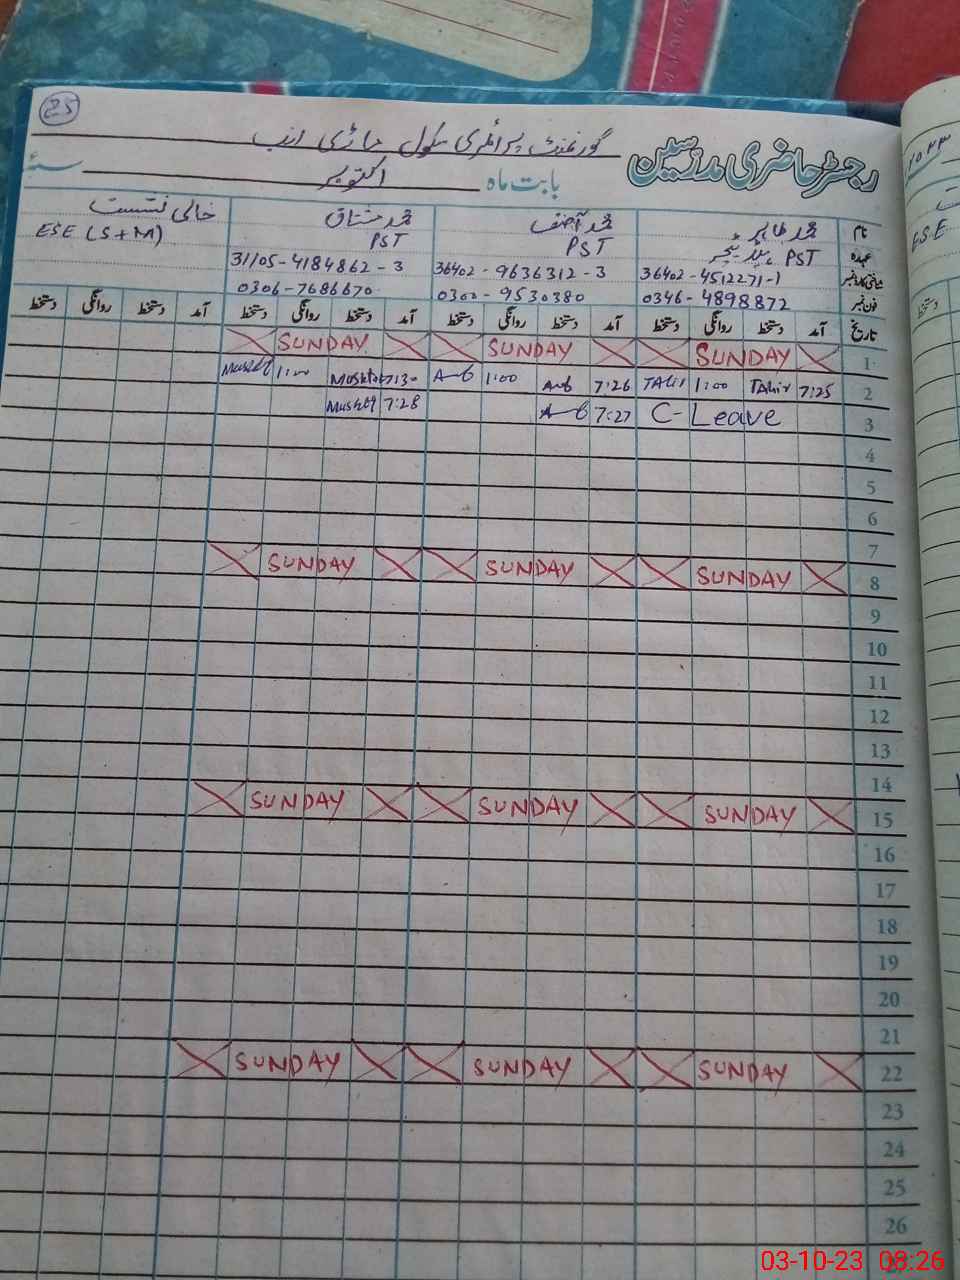 25
رجسٹر حاضری مدرسین گورنمنٹ پرائمری سکول
بابت ماہ اکتوبر
نام محمد طاہر محمد آصف محمد مشتاق خالی نشست
عہدہ PST ہیڈ ٹیچر PST PST ESE (S+M)
شناختی کارڈ نمبر 36402-4512271-1 36402-9636312-3 31105-4184862-3
فون نمبر 0346-4898872 0300-9530380 0306-7686670
تاریخ آمد دستخط روانگی دستخط آمد دستخط روانگی دستخط آمد دستخط روانگی دستخط آمد دستخط روانگی دستخط
1 SUNDAY SUNDAY SUNDAY
2 7:25 Tahir 1:00 Tahir 7:26 1:00 7:30 1:00
3 C-Leave 7:27 7:28
4
5
6
7
8 SUNDAY SUNDAY SUNDAY
9
10
11
12
13
14
15 SUNDAY SUNDAY SUNDAY
16
17
18
19
20
21
22 SUNDAY SUNDAY SUNDAY
23
24
25
26
03-10-23 08:26